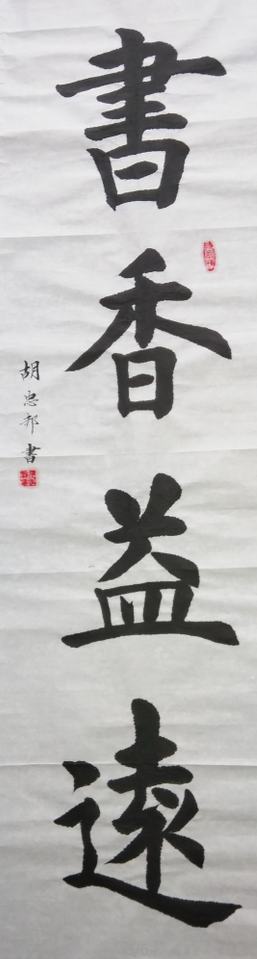 書香益遠
胡忠邦書